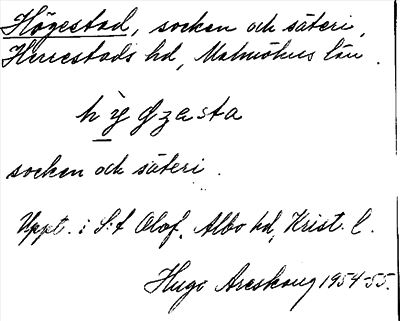 Högestad, socken och säteri,
Herrestads hd, Malmöhus län.
socken och säteri.
Uppt. i S:t Olof. Albo hd, Krist. l.
Hugo Areskoug 1954-55.